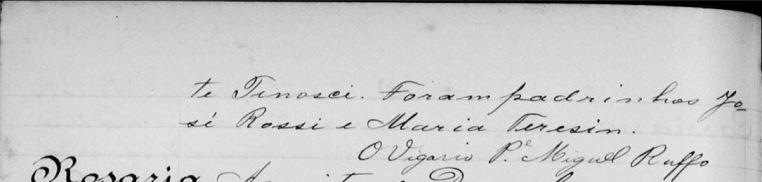 te Tinosci. Foram padrinhos Jo-
sé Rossi e Maria Teresin.
O Vigario P.e Miguel Ruffo
Rosaria